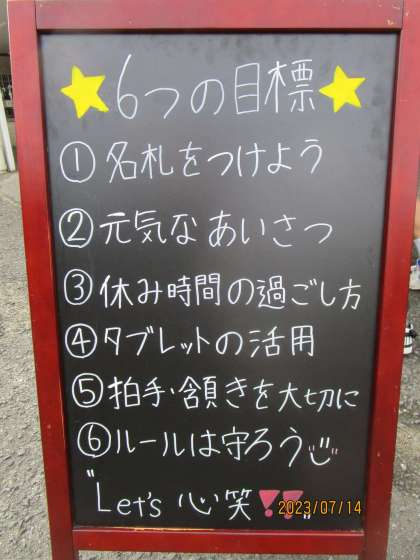 ★6つの目標★
①名札をつけよう
②元気なあいさつ
③休み時間の過ごし方
④タブレットの活用
⑤拍手・頷きを大切に
⑥ルールは守ろう
"Let's 心笑‼"
2023/07/14